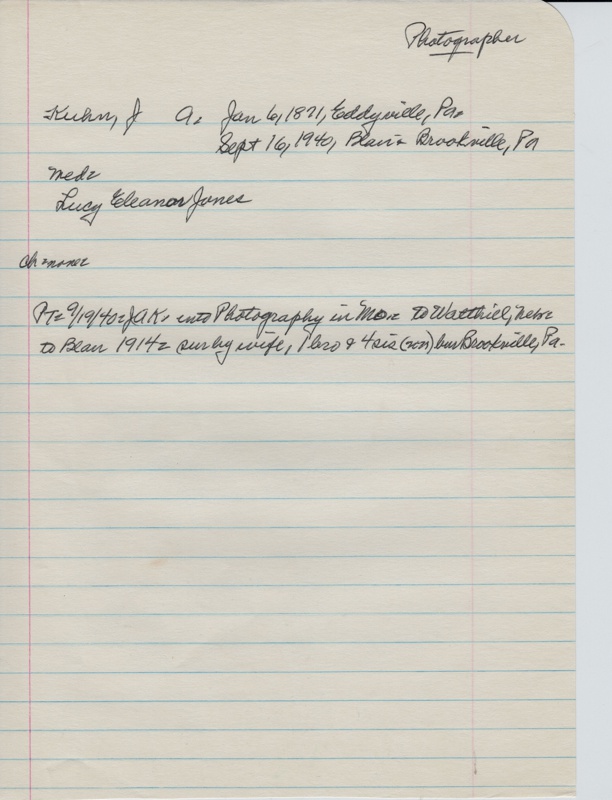 Photographer
Kuhn, J A. Jan 6, 1871, Eddyville, Pa=
Sept 16, 1940, Blair= Brookville, Pa
Med=
Lucy Eleanor Jones
Ch=none=
PT= 9/19/40= JAK, into Photography in Mo= to Walthill, Nebr=
to Blair 1914= sur by wife, 1 bro & 4 sis (non) bur Brookville, Pa-